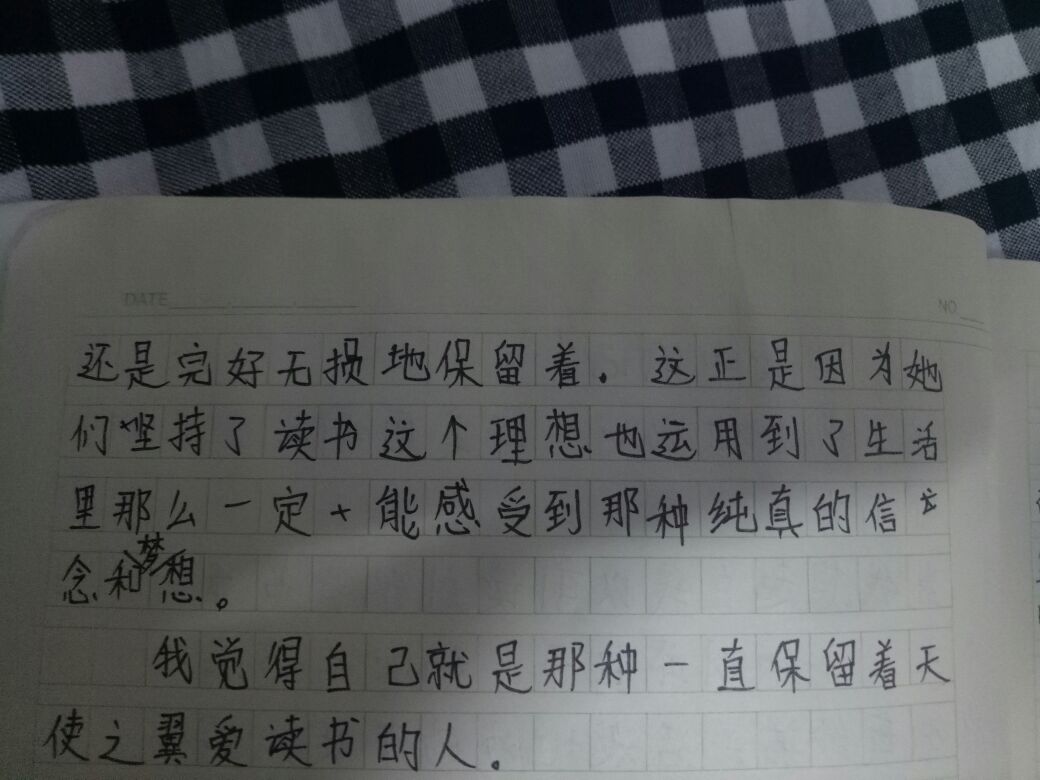 DATE
NO
还是完好无损地保留着. 这正是因为她
们坚持了读书这个理想也运用到了生活
里那么一定能感受到那种纯真的信
念和梦想。
我觉得自己就是那种一直保留着天
使之翼爱读书的人.